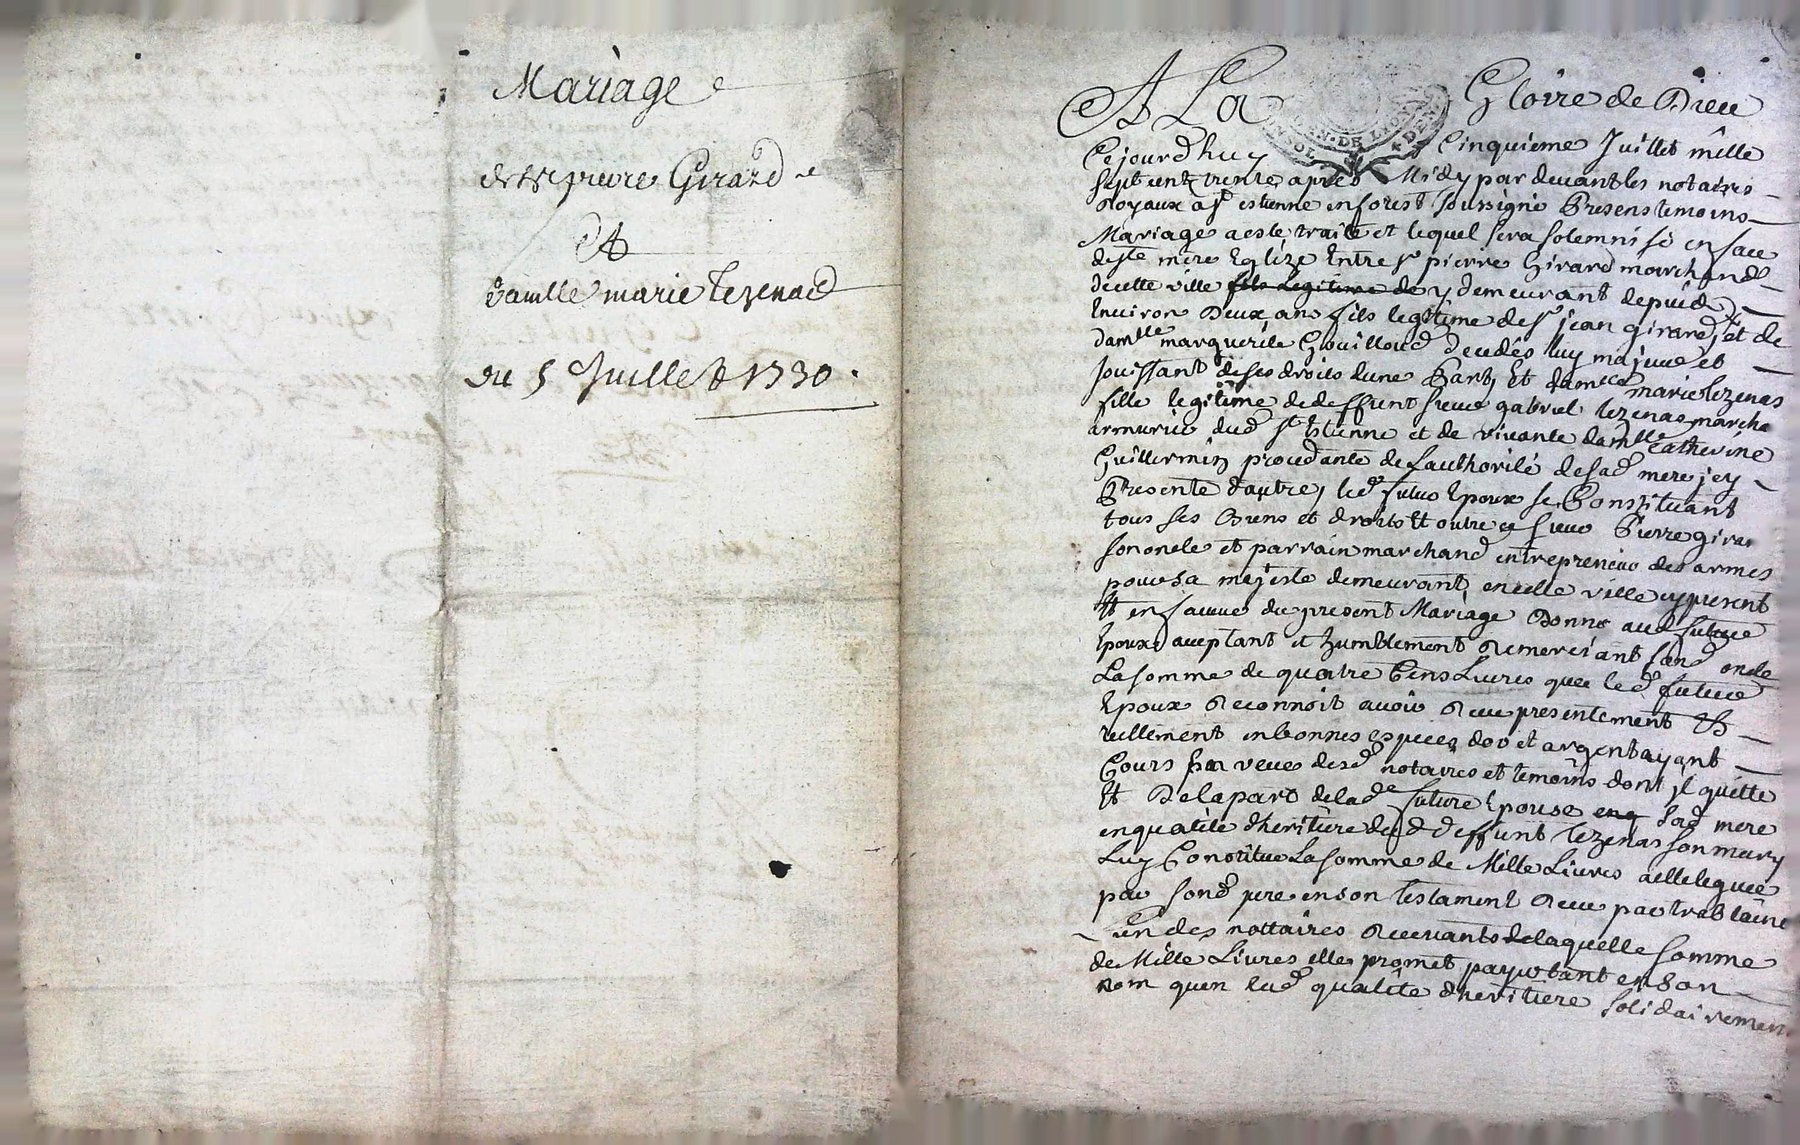 Mariage
de sr pierre Girard
Et
damlle marie Tezenad
du 5 Juillet 1730.
A La Gloire de Dieu
Cejourdhuy Cinquieme Juillet mille
sept cent trente apres Midy par devant les notaires
Royaux a st estienne en forest soussigné Presens temoins
Mariage a esté traité et lequel sera solemnisé en face
de ste mere Eglize Entre sr pierre Girard marchand
de cette ville fils Legitime de y demeurant depuid
Environ Deux ans fils legitime de sr jean girard, et de
damlle marguerite Gouilloud decedés luy majeur et
Jouissant de ses droits dune Part, Et damlle marie tezenas
fille legitime de deffunt sieur gabriel tezenas marcha
armurier dud st Etienne et de vivante damlle Catherine
Guillermin procedante de Lauthorité de sad mere jcy
Presente dautre, led futur Epoux se Constituant
tous ses Biens et droits Et outre ce sieur Pierre girar
son oncle et parrain marchand entrepreneur des armes
pour sa majesté demeurant en cette ville cy present
Et en faveur du present Mariage Donne aud future
Epoux acceptant et humblement Remerciant sond oncle
La somme de quatre Cens Livres que led future
Epoux Reconnoit avoir Receu presentement Et
reellement en bonnes especes dor et argent ayant
Cours par veues desd notaires et temoins dont jl quitte
Et De la part de lade future Epouse enq sad mere
en qualité dheritiere dud deffunt tezenas son mary
Luy Constitue La somme de Mille Livres a elle leguée
par sond pere en son testament Receu par
un des nottaires Recevants de laquelle somme
de Mille Livres elle promet payer tant en son
nom quen lad qualité dheritiere solidairemen